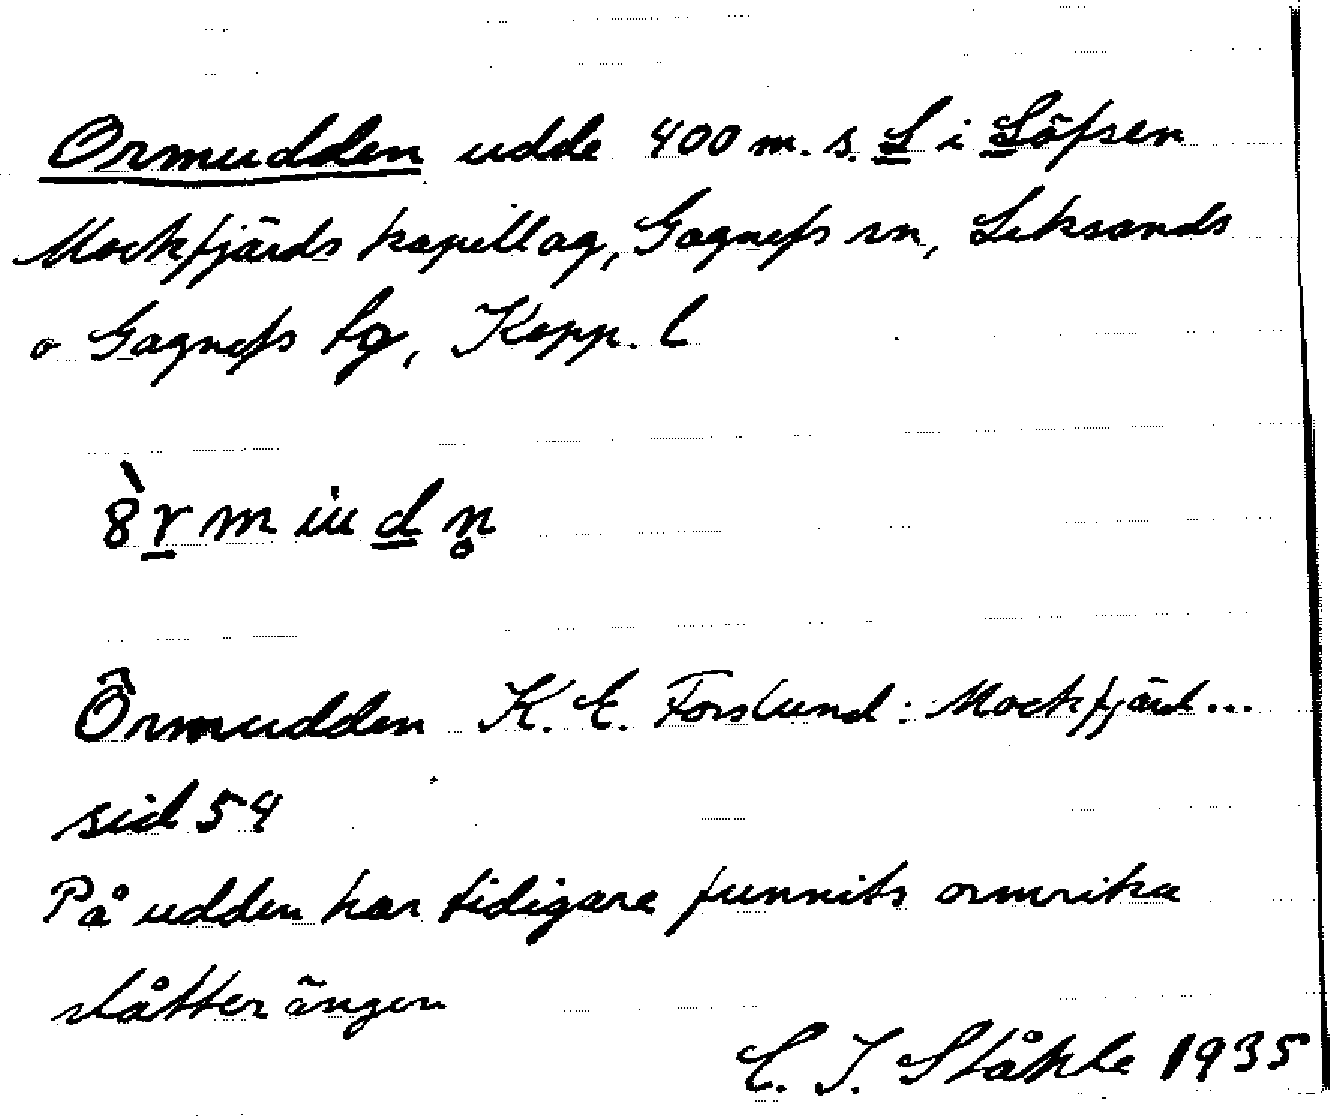 Ormudden udde 400 m. s. L i Löfsen
Mockfjärds kapellag, Gagnefs sn, Leksands
o Gagnefs tg, Kopp. l
Örmudden K. E. Forslund: Mockfjärd...
sid 54
På udden har tidigare funnits ormrika
slåtterängen
C. I. Ståhle 1935